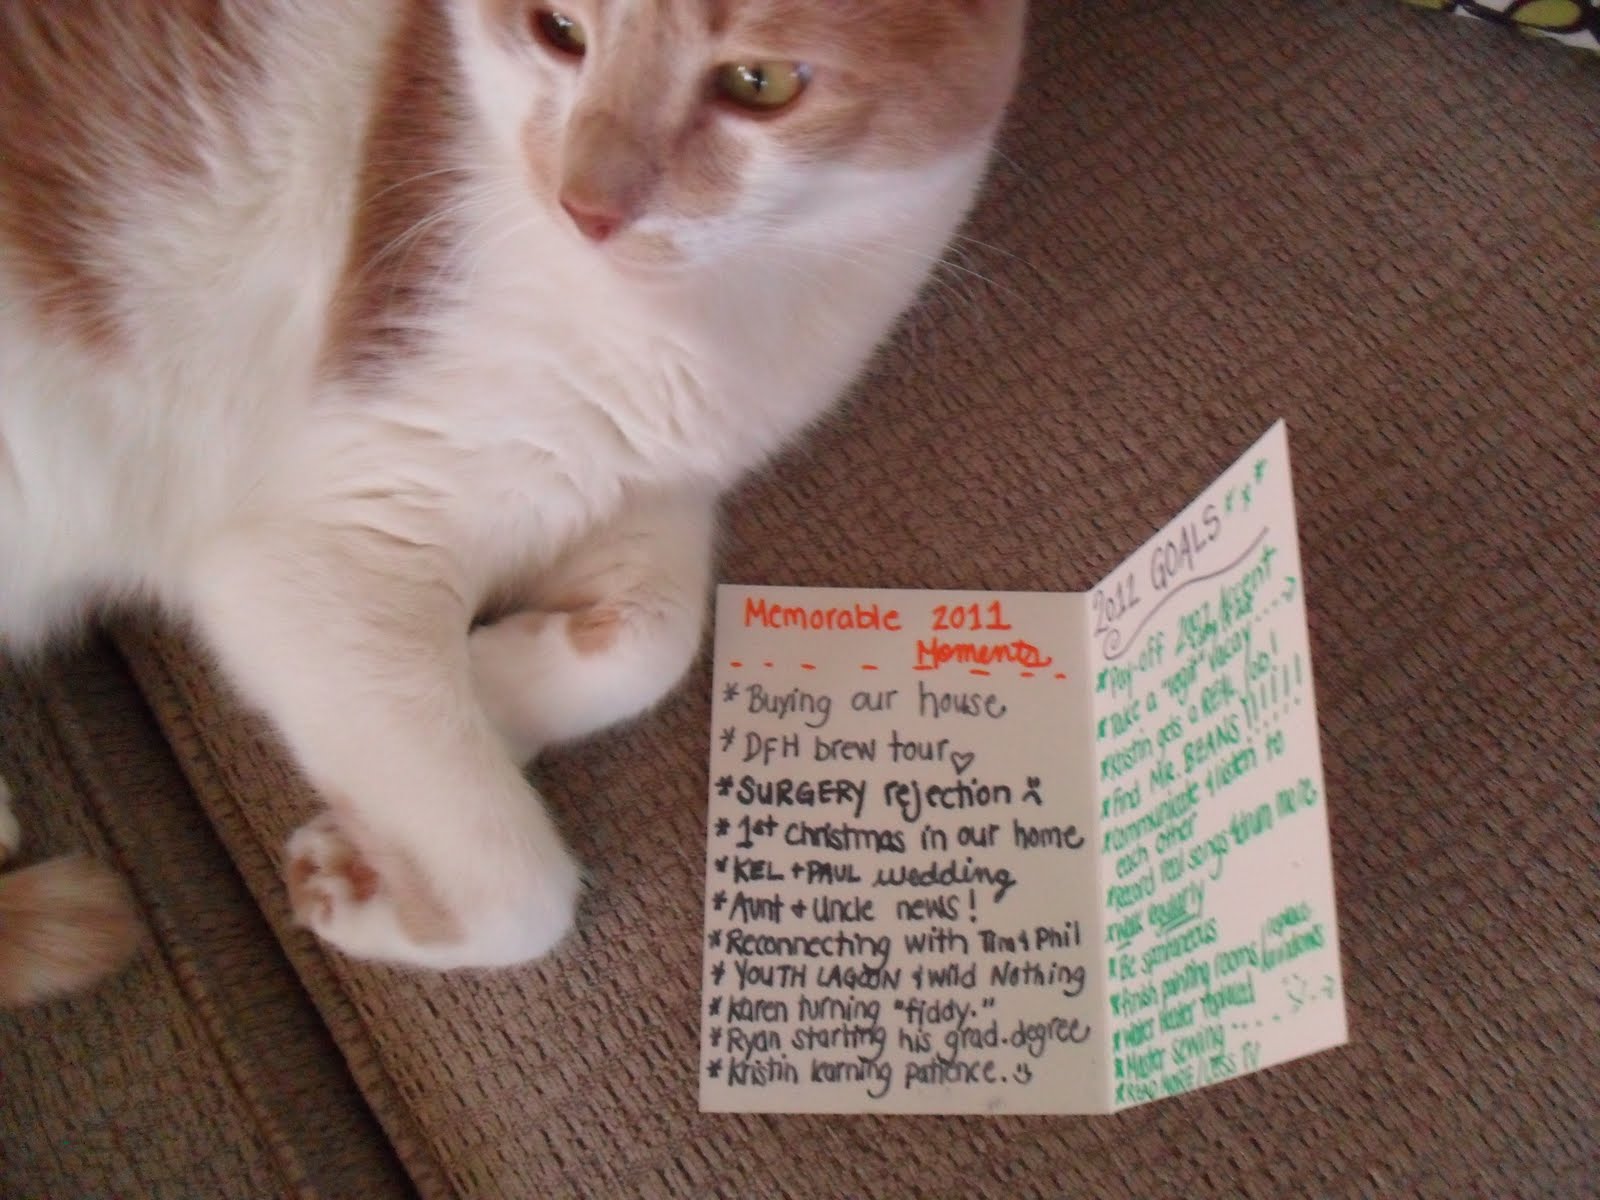 Memorable 2011
Moments
* Buying our house
* DFH brew tour ♡
* SURGERY rejection :(
* 1st christmas in our home
* KEL + PAUL wedding
* Aunt + Uncle news!
* Reconnecting with Tim & Phil
* YOUTH LAGOON & wild Nothing
* Karen turning "fiddy."
* Ryan starting his grad. degree
* Kristin learning patience. :)
2012 GOALS ***
* Pay-off 2007 Accent
* Take a "legit" vacay
* Kristin gets a REAL job!
* Find Mr. BEANS!!!!!!!
* Communicate & listen to
each other
* Record real songs & drum more
* Walk regularly
* Be spontaneous
* Finish painting rooms / replace
windows
* Water heater replaced
* Master sewing
* READ MORE / LESS TV